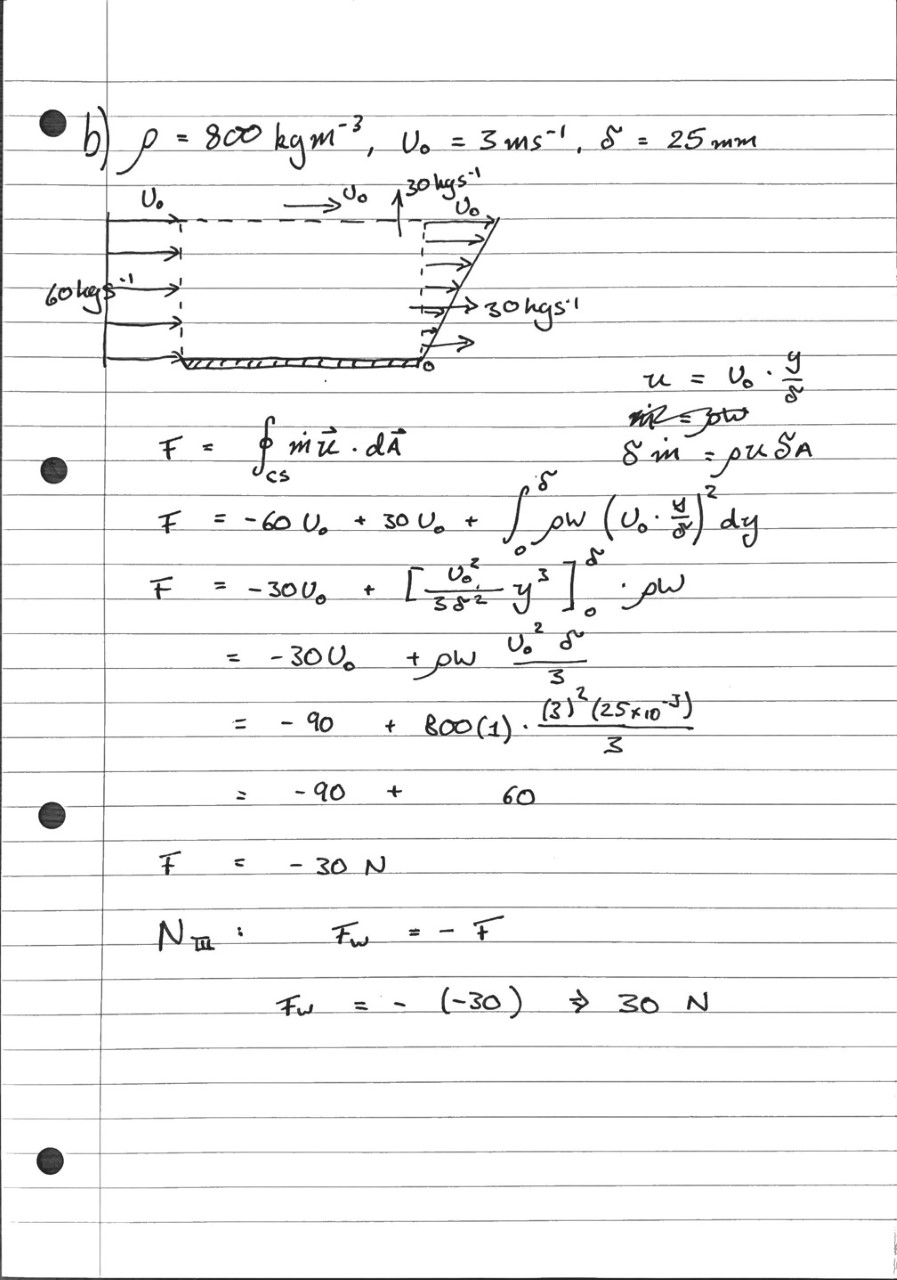 b) ρ = 800 kgm⁻³, U₀ = 3 ms⁻¹, δ = 25 mm
30 kgs⁻¹
U₀ → U₀ U₀
60 kgs⁻¹
→ 30 kgs⁻¹
0
u = U₀ · y/δ
F = ∮_CS ṁu⃗ · dA⃗
δṁ = ρuδA
F = -60 U₀ + 30 U₀ + ∫₀^δ ρW (U₀ · y/δ)² dy
F = -30U₀ + [U₀²/3δ² y³]₀^δ · ρW
= -30U₀ + ρW U₀² δ/3
= -90 + 800(1) · (3)²(25×10⁻³)/3
= -90 + 60
F = -30 N
N_III : F_w = -F
F_w = -(-30) ⇒ 30 N